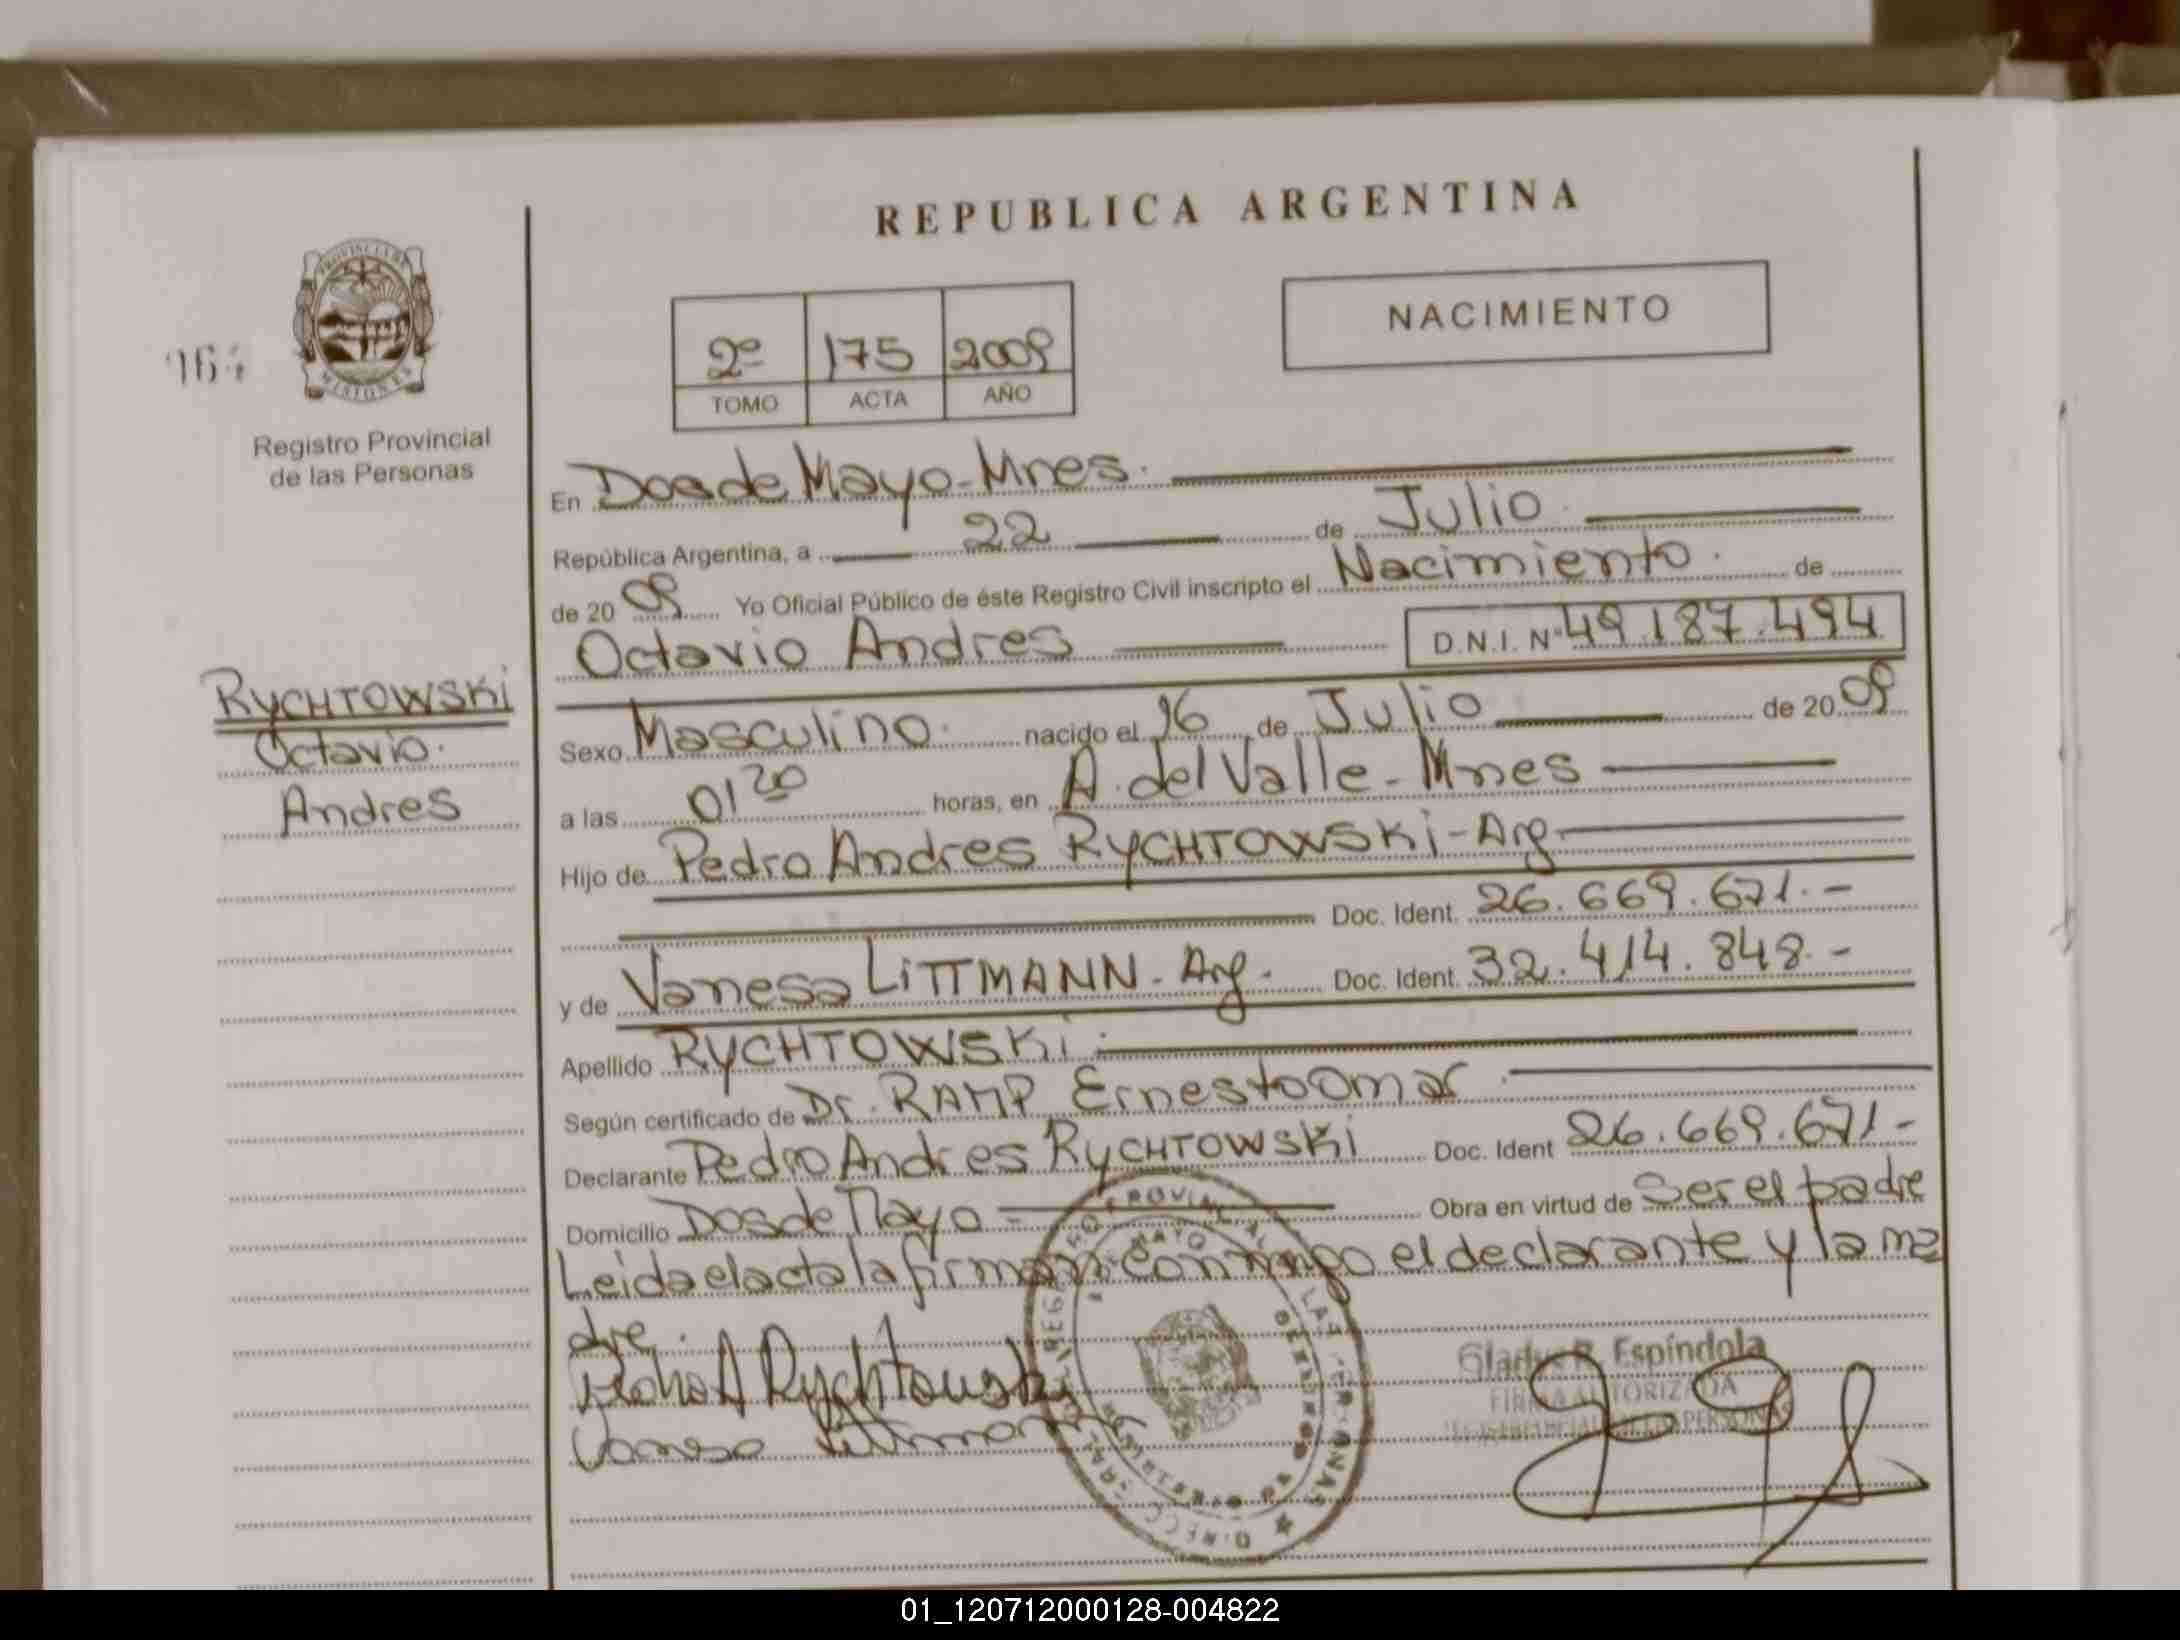 REPUBLICA ARGENTINA
PROVINCIA DE
MISIONES
Registro Provincial
de las Personas
2º 175 2009
TOMO ACTA AÑO
NACIMIENTO
En Dos de Mayo-Mnes.
República Argentina, a 22 de Julio
de 2009 Yo Oficial Público de éste Registro Civil inscripto el Nacimiento. de
Octavio Andres D.N.I. Nº 49.187.494
RYCHTOWSKI
Octavio.
Andres
Sexo Masculino. nacido el 16 de Julio de 2009
a las 01 20 horas, en A. del Valle-Mnes
Hijo de Pedro Andres RYCHTOWSKI-Arg.
Doc. Ident. 26.669.671.-
y de Vanesa LITTMANN. Arg. Doc. Ident. 32.414.848.-
Apellido RYCHTOWSKI.
Según certificado de Dr. RAMP Ernesto Omar.
Declarante Pedro Andres RYCHTOWSKI Doc. Ident 26.669.671-
Domicilio Dos de Mayo- Obra en virtud de Ser el padre
Leida el acta la firman conmigo el declarante y la ma
dre.
Rychtowski
Vanesa Littmann
Gladys R. Espíndola
FIRMA AUTORIZADA
01_120712000128-004822